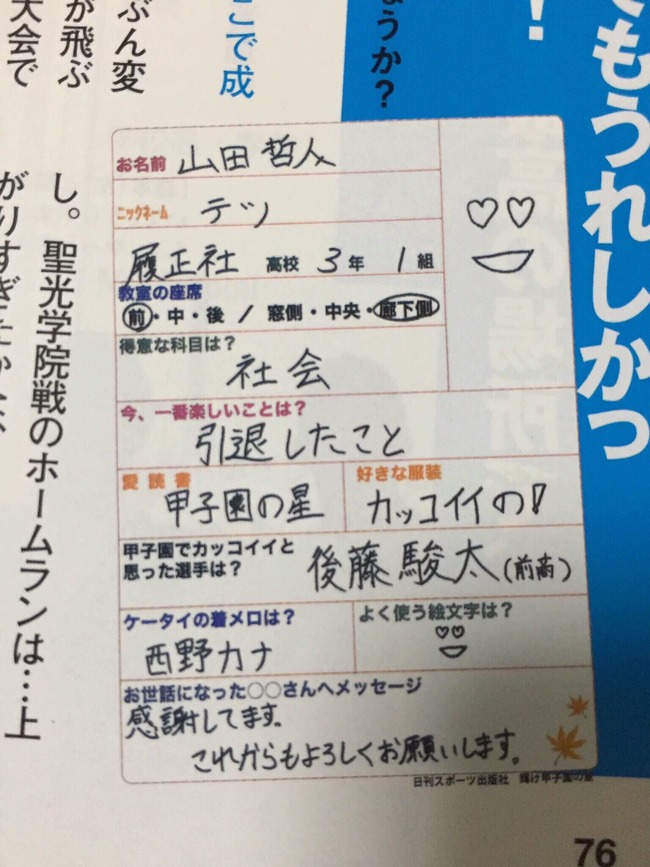 てもうれしかっ
！
ようか？
こで成
ぶん変
が飛ぶ
大会で
し。聖光学院戦のホームランは…上
お名前 山田哲人
ニックネーム テツ
履正社 高校 3年 1組
教室の座席
前・中・後 / 窓側・中央・廊下側
得意な科目は？
社会
今、一番楽しいことは？
引退したこと
愛読書
甲子園の星
好きな服装
カッコイイの!
甲子園でカッコイイと
思った選手は？
後藤駿太(前商)
ケータイの着メロは？
西野カナ
よく使う絵文字は？
お世話になった○○さんへメッセージ
感謝してます。
これからもよろしくお願いします。
日刊スポーツ出版社 輝け甲子園の星
76